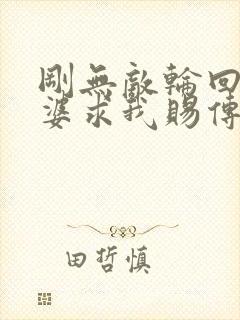 剛無敵輪回
婆求我賜傳
田哲慎